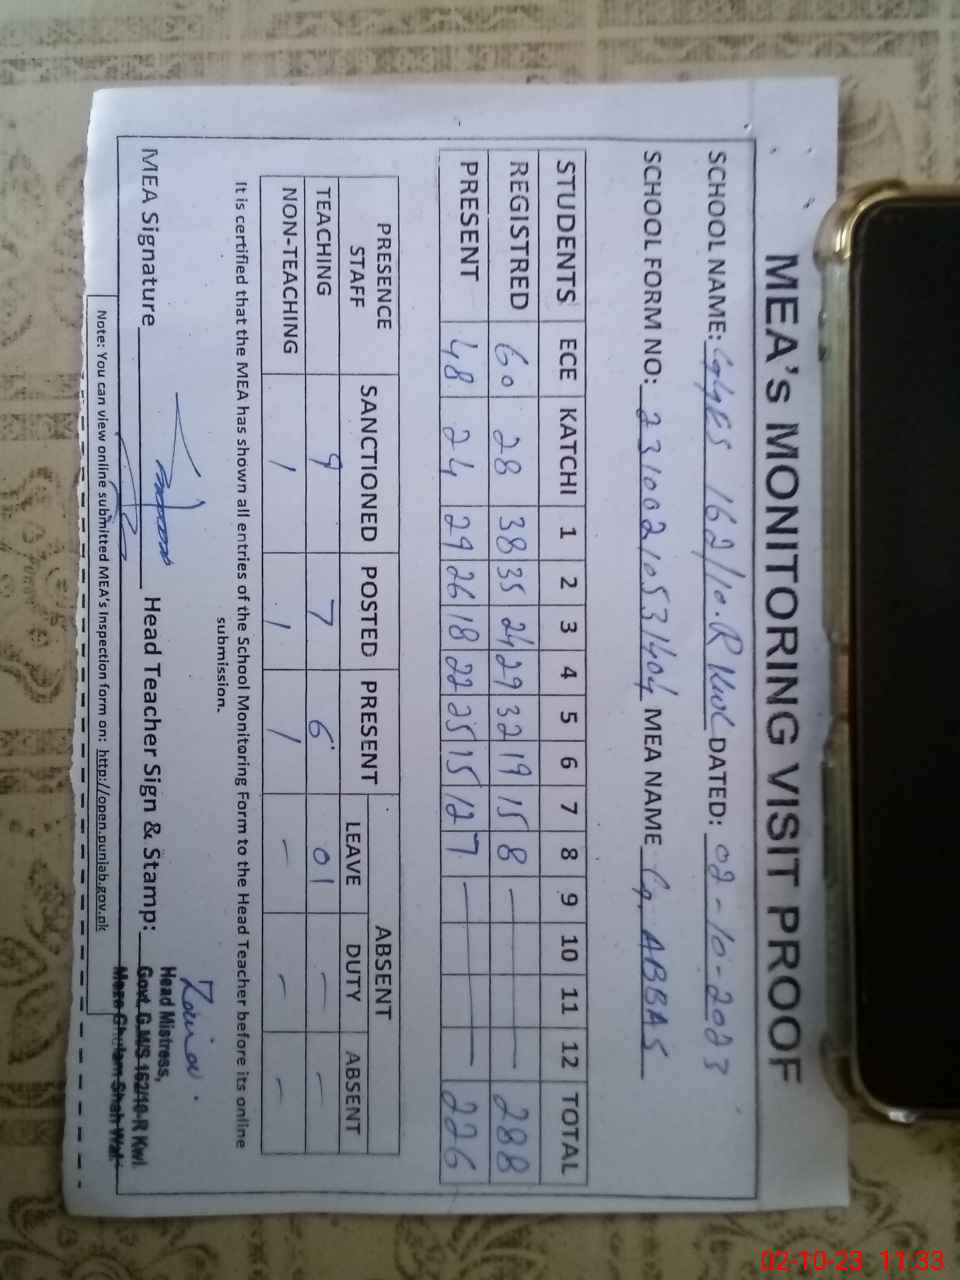 MEA's MONITORING VISIT PROOF
SCHOOL NAME: GGES 162/10.R Kwl DATED: 02-10-2023
SCHOOL FORM NO: 23100210531404 MEA NAME G. ABBAS
STUDENTS ECE KATCHI 1 2 3 4 5 6 7 8 9 10 11 12 TOTAL
REGISTRED 60 28 38 35 24 29 32 19 15 8 — — 288
PRESENT 48 24 29 26 18 22 25 15 12 7 — — 226
PRESENCE STAFF SANCTIONED POSTED PRESENT ABSENT
LEAVE DUTY ABSENT
TEACHING 9 7 6 01 — —
NON-TEACHING 1 1 1 — — —
It is certified that the MEA has shown all entries of the School Monitoring Form to the Head Teacher before its online
submission.
MEA Signature Head Teacher Sign & Stamp:
Head Mistress,
Govt. G.M/S 162/10-R Kwl.
Moza Ghulam Shah Wal
Note: You can view online submitted MEA's Inspection form on: http://open.punjab.gov.pk
02-10-23 11:33